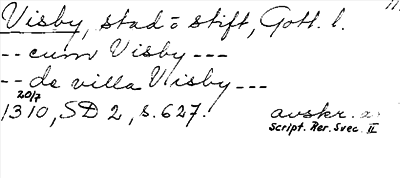 Visby, stad o stift, Gotl. l.
-- cum Visby ---
-- de villa Visby ---
20/7
1310, SD 2, s. 627. avskr. a.
Script. Rer. Svec. II